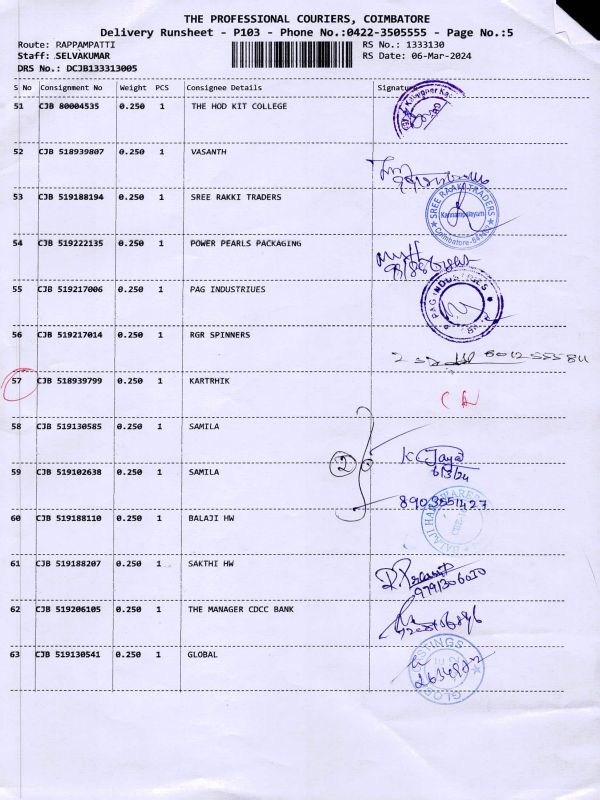 THE PROFESSIONAL COURIERS, COIMBATORE
Delivery Runsheet - P103 - Phone No.:0422-3505555 - Page No.:5
Route: RAPPAMPATTI RS No.: 1333130
Staff: SELVAKUMAR RS Date: 06-Mar-2024
DRS No.: DCJB133313005
S No Consignment No Weight PCS Consignee Details Signature
51 CJB 80004535 0.250 1 THE HOD KIT COLLEGE
52 CJB 518939807 0.250 1 VASANTH
53 CJB 519188194 0.250 1 SREE RAKKI TRADERS
SREE RAAKI TRADERS
Kannampalayam
Coimbatore
54 CJB 519222135 0.250 1 POWER PEARLS PACKAGING
55 CJB 519217006 0.250 1 PAG INDUSTRIUES
PAG INDUSTRIES
56 CJB 519217014 0.250 1 RGR SPINNERS
57 CJB 518939799 0.250 1 KARTRHIK
58 CJB 519130585 0.250 1 SAMILA
2
K C Jaya
6/3/24
59 CJB 519102638 0.250 1 SAMILA
8903551427
60 CJB 519188110 0.250 1 BALAJI HW
61 CJB 519188207 0.250 1 SAKTHI HW
9791306010
62 CJB 519206105 0.250 1 THE MANAGER CDCC BANK
63 CJB 519130541 0.250 1 GLOBAL